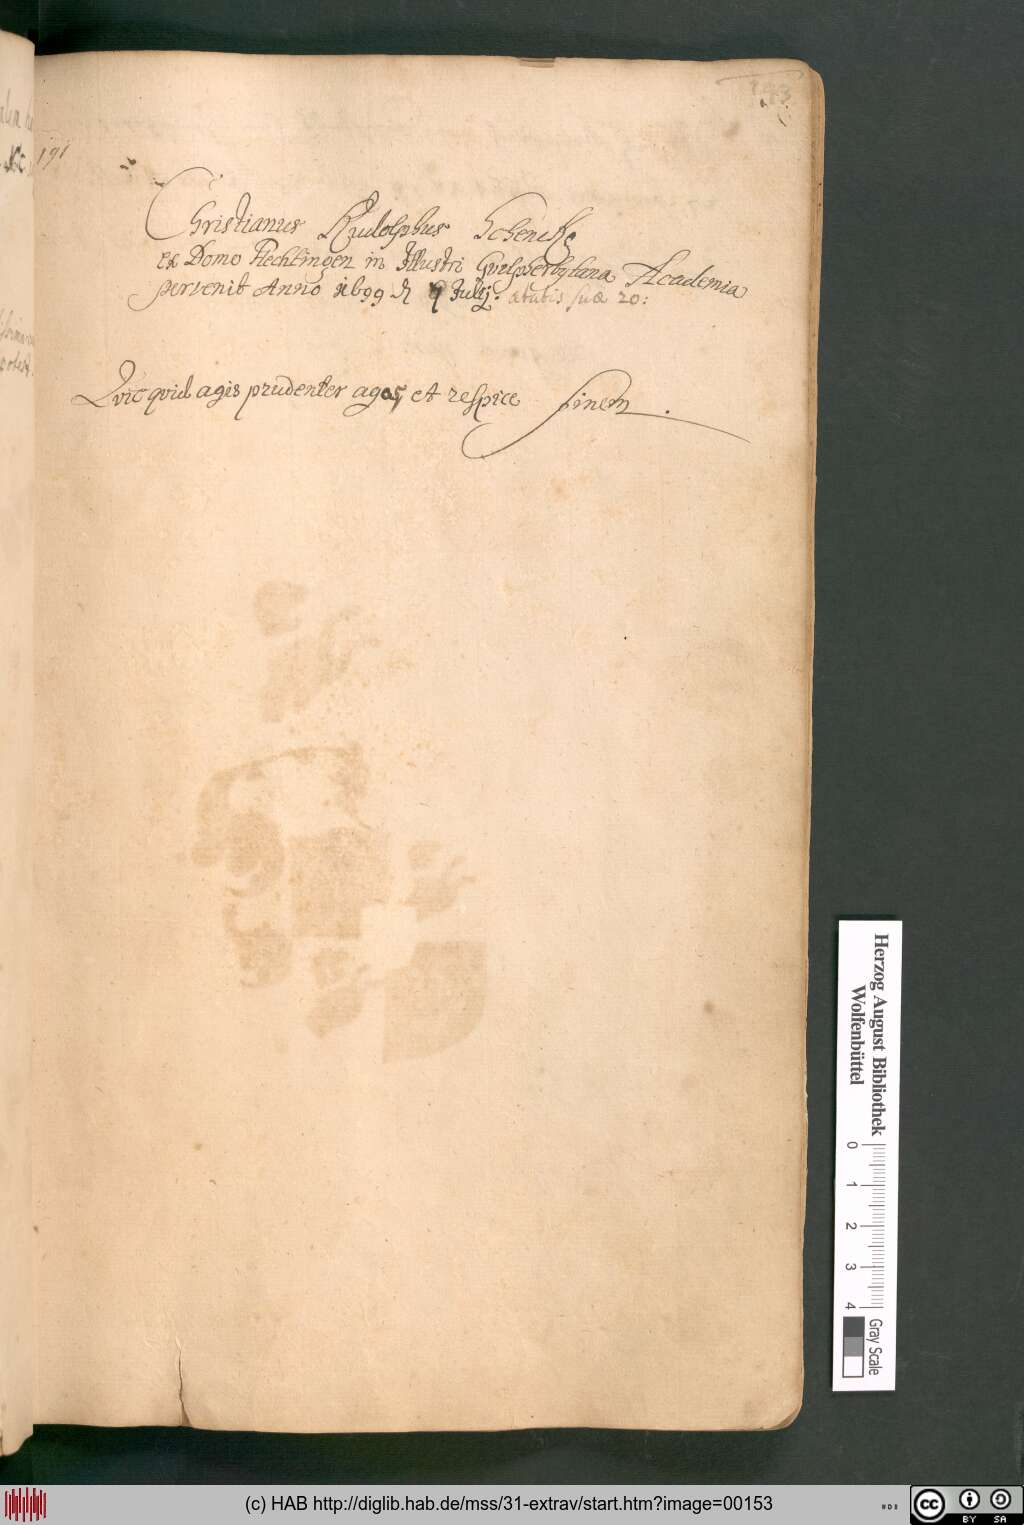 143
191
Christianus Rudolphus Schenck
ex Domo Flechtingen in Illustri Guelpherbytana Academia
pervenit Anno 1699 d 4 Julij. ætatis suæ 20:
Quic quid agis prudenter agas, et respice finem.
Herzog August Bibliothek
Wolfenbüttel
0 1 2 3 4
Gray Scale
(c) HAB http://diglib.hab.de/mss/31-extrav/start.htm?image=00153
cc BY SA